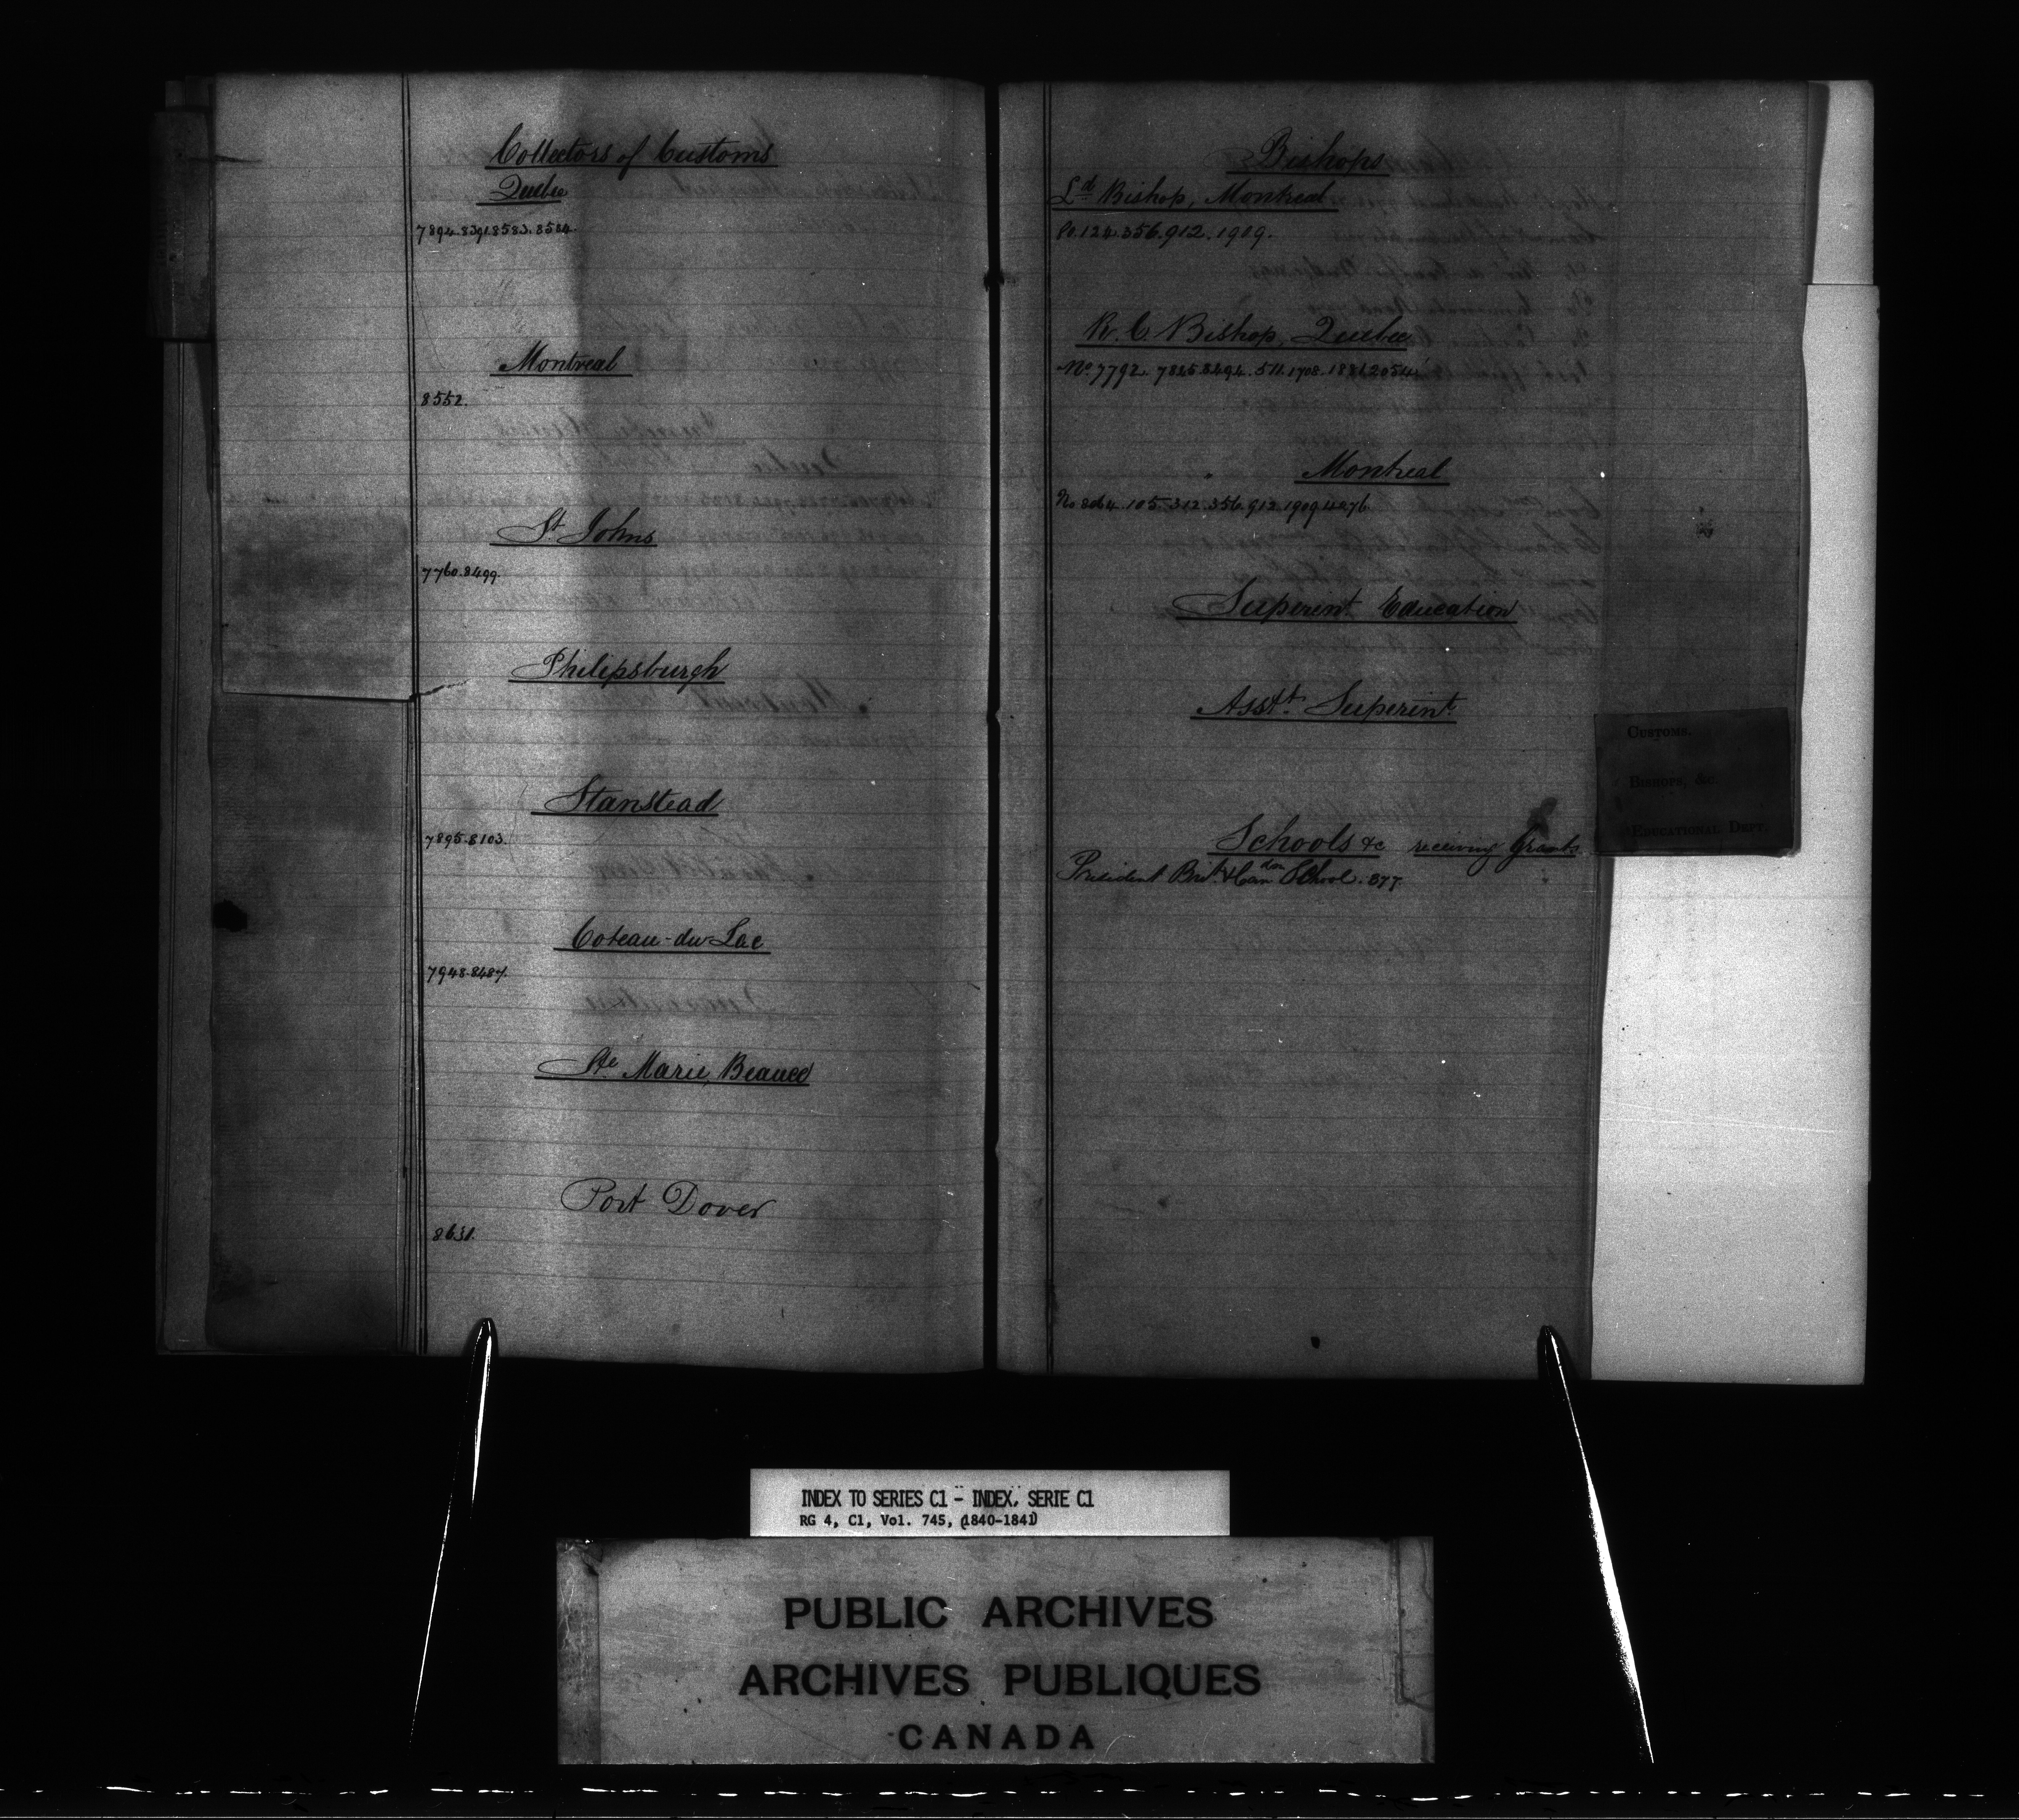 Collectors of Customs
Quebec
7894.8391.8583.8584.
Montreal
8552.
St Johns
7760.8499.
Philipsburgh
Stanstead
7895.8103.
Coteau-du-Lac
7948.8487.
Ste Marie, Beauce
Port Dover
8631.
Bishops
Ld Bishop, Montreal
124.356.912.1909.
R. C. Bishop, Quebec
No. 7792. 7845.8494.511.1708.1881.2054.
Montreal
No 8064.105.312.356.912.1909.4276
Superint. Education
Asst. Superint.
Schools &c receiving Grants
President Brit. & Can School. 377.
CUSTOMS.
BISHOPS, &c.
EDUCATIONAL DEPT.
INDEX TO SERIES C1 - INDEX, SERIE C1
RG 4, C1, Vol. 745, (1840-1841)
PUBLIC ARCHIVES
ARCHIVES PUBLIQUES
CANADA